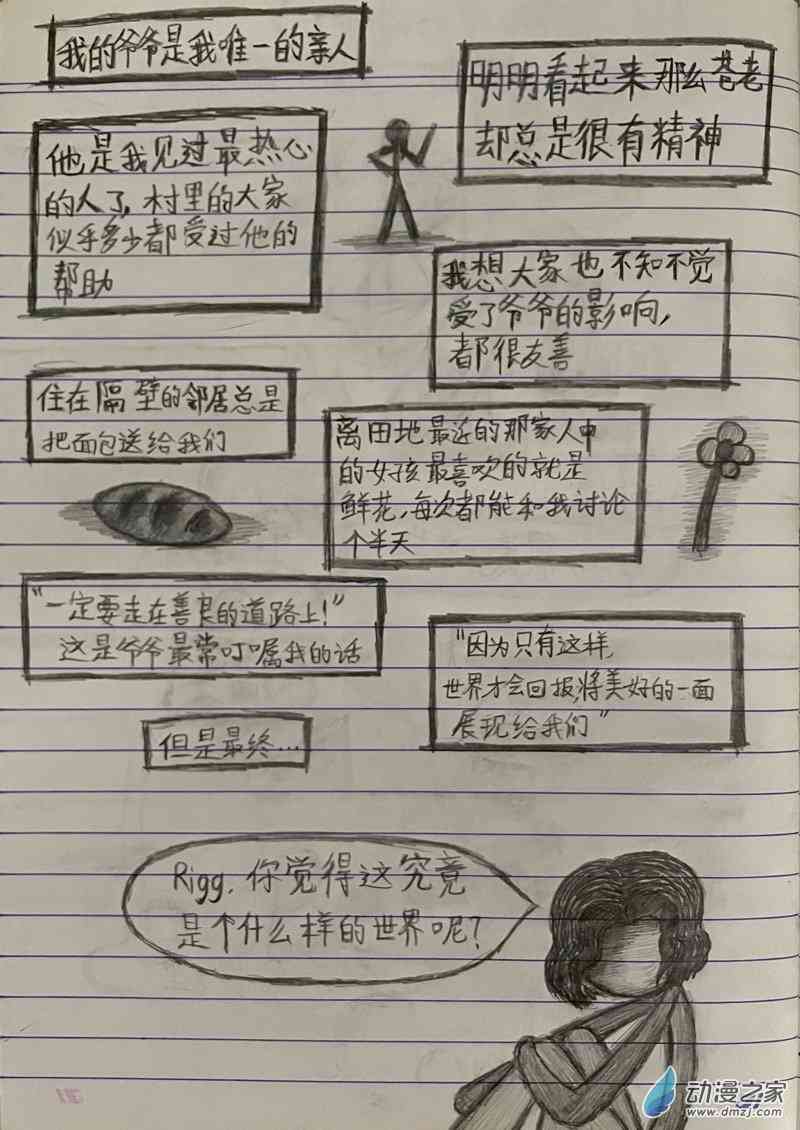 我的爷爷是我唯一的亲人
明明看起来那么苍老
却总是很有精神
他是我见过最热心
的人了，村里的大家
似乎多少都受过他的
帮助
我想大家也不知不觉
受了爷爷的影响，
都很友善
住在隔壁的邻居总是
把面包送给我们
离田地最近的那家人中
的女孩最喜欢的就是
鲜花，每次都能和我讨论
个半天
“一定要走在善良的道路上！”
这是爷爷最常叮嘱我的话
“因为只有这样，
世界才会回报，将美好的一面
展现给我们”
但是最终…
Rigg，你觉得这究竟
是个什么样的世界呢？
动漫之家
www.dmzj.com